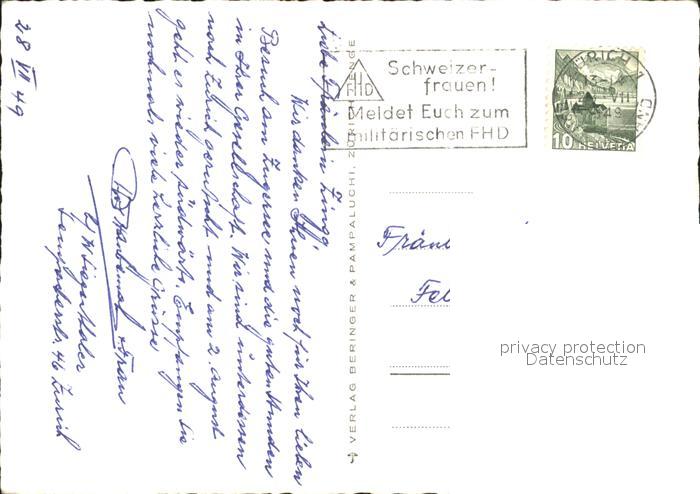 Liebe Fräulein Zingg!
Wir danken Ihnen noch für Ihren lieben
Besuch am Zugersee und die guten Stunden
in Ihrer Gesellschaft. Wir sind unterdessen
nach Zürich gerutscht und am 2. August
geht es wieder südwärts. Empfangen Sie
nochmals viele herzliche Grüsse
Frau
Zürich
28 VII 49
VERLAG BERINGER & PAMPALUCHI, ZÜRICH
FHD
Schweizer-
frauen!
Meldet Euch zum
militärischen FHD
ZÜRICH 1
VII
49
10 HELVETIA
Fräul
Fel
privacy protection
Datenschutz